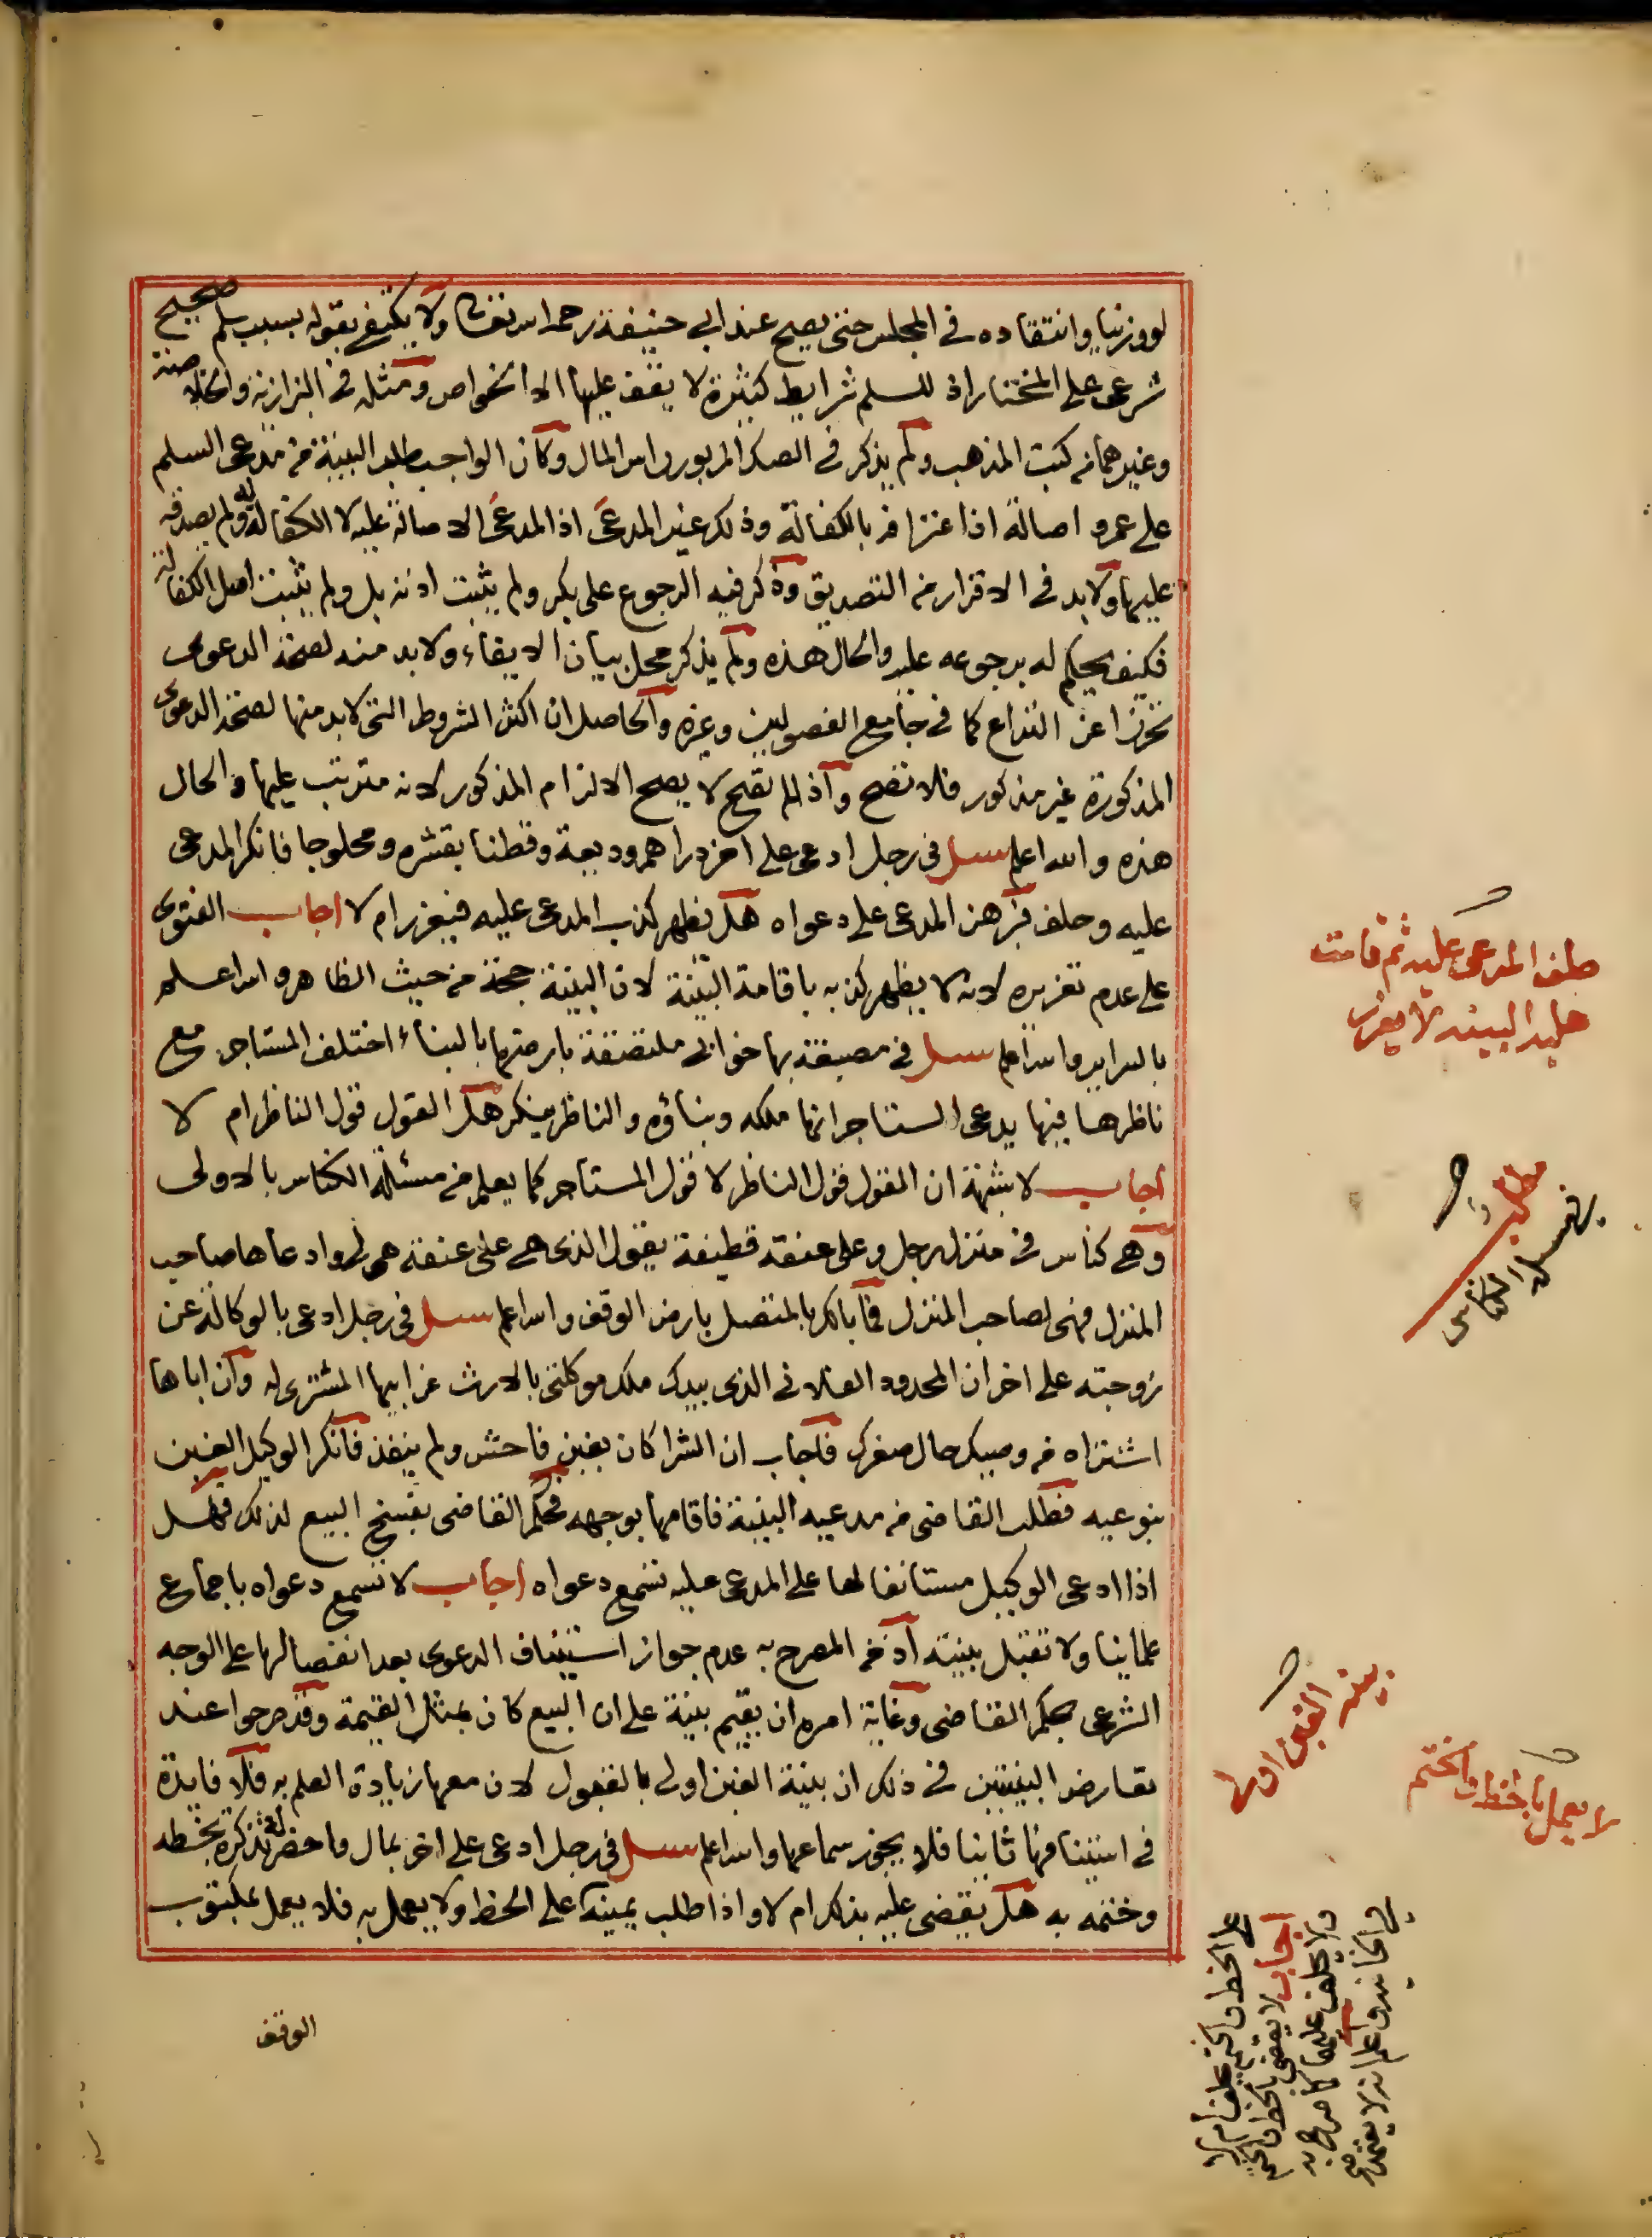 لو وزنيا وانتقاده في المجلس حتى يصح عند ابي حنيفة رحمه الله تعالى ولا يكتفي بقوله بسبب سلم صحيح
شرعي على المختار اذ للسلم شرايط كثيرة لا يقف عليها الا الخواص ومثله في البزازية والخلاصة
وغيرهما من كتب المذهب ولم يذكر في الصك المزبور راس المال وكان الواجب طلب البينة من مدعي السلم
على عمرو اصالة اذا اعترافه بالكفالة وذلك غير المدعى اذ المدعى الاصالة عليه لا الكفالة له ولم يصدقه
عليها ولا بد في الاقرار من التصديق وذكر فيه الرجوع على بكر ولم يثبت اذنه بل ولم يثبت اصل الكفالة
فكيف يحكم له برجوعه عليه والحال هذه ولم يذكر محل بيان الايفاء ولا بد منه لصحة الدعوى
تحرزا عن النزاع كما في جامع الفصولين وغيره والحاصل ان اكثر الشروط التي لا بد منها لصحة الدعوى
المذكورة غير مذكور فلا تصح واذا لم تصح لا يصح الالزام المذكور لانه مترتب عليها والحال
هذه والله اعلم سئل في رجل ادعى على اخر دراهم وديعة وقطنا بقشره ومحلوجا فانكر المدعى
عليه وحلف فبرهن المدعي على دعواه هل يظهر كذب المدعى عليه فيعزر ام لا اجاب الفتوى
على عدم تعزيره لانه لا يظهر كذبه باقامة البينة لان البينة حجة من حيث الظاهر والله اعلم
بالسراير والله اعلم سئل في مصبغة بها خوابي ملتصقة بارضها بالبناء اختلف المستاجر مع
ناظرها فيها يدعي المستاجر انها ملكه وبناؤه والناظر ينكر هل القول قول الناظر ام لا
اجاب لا شبهة ان القول قول الناظر لا قول المستاجر كما يعلم من مسئلة الكناس بالاولى
وهي كناس في منزل رجل وعلى عنقه قطيفة يقول الذي هي على عنقه هي لي وادعاها صاحب
المنزل فهي لصاحب المنزل فما بالك بالمتصل بارض الوقف والله اعلم سئل في رجل ادعى بالوكالة عن
زوجته على اخر ان المحدود الفلاني الذي بيدك ملك موكلتي بالارث عن ابيها المشترى له وان اباها
اشتراه من وصيك حال صغرك فاجاب ان الشرا كان بغبن فاحش ولم ينفذ فانكر الوكيل الغبن
بنوعيه فطلب القاضي من مدعيه البينة فاقامها بوجهه فحكم القاضي بفسخ البيع لذلك فهل
اذا ادعى الوكيل مستانفا لها على المدعى عليه تسمع دعواه اجاب لا تسمع دعواه باجماع
علماينا ولا تقبل بينته اذ من المصرح به عدم جواز استيناف الدعوى بعد انفصالها على الوجه
الشرعي بحكم القاضي وغاية امره ان يقيم بينة على ان البيع كان بمثل القيمة وقد صرحوا عند
تعارض البينتين في ذلك ان بينة الغبن اولى بالقبول لان معها زيادة العلم به فلا فايدة
في استينافها ثانيا فلا يجوز سماعها والله اعلم سئل في رجل ادعى على اخر بمال واحضر له تذكرة بخطه
وختمه به هل يقضى عليه بذلك ام لا واذا طلب يمينه على الخط ولا يعمل به فلا يعمل بمكتوب
الوقف
حلف المدعى عليه ثم قامت
عليه البينة لا يعزر
مطلب
مسئلة الكناس
بينة الغبن اولى
لا يعمل بالخط والختم
على الخط والختم يحلف ام لا
اجاب لا يقضى بالخط والختم
ولا يحلف عليهما كما صرح به
في الخانية واعلم انه لا يعتمد